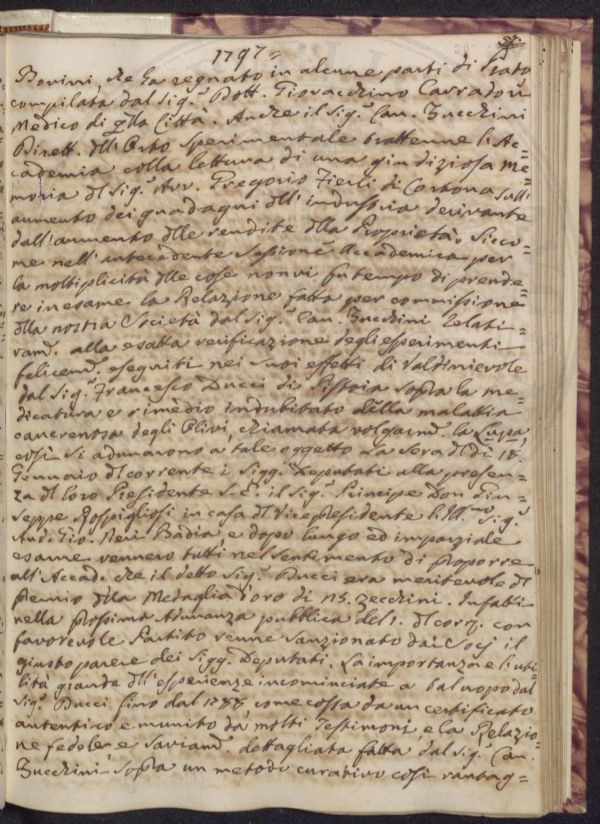 1797=
Bovini, che ha regnato in alcune parti di Prato
compilata dal Sig.r Dott. Giovacchino Carradori
Medico di qlla Città. Anche il Sig.r Can. Zucchini
Dirett. dll'Orto Sperimentale trattenne l'Ac=
cademia colla lettura di una giudiziosa Me=
moria dl Sig.r Avv. Gregorio Fierli di Cortona sull'
aumento dei guadagni dll'industria derivante
dall'aumento dlle rendite dlla Proprietà. Sicco=
me nell'antecedente Sessione Accademica per
la moltiplicità dlle cose non vi fu tempo di prende=
re in esame la Relazione fatta per commissione
dlla nostra Società dal Sig.r Can. Zucchini relati=
vam. alla esatta verificazione degli esperimenti
felicem. eseguiti nei suoi effetti di Valdinievole
dal Sig.r Francesco Ducci di Pistoia sopra la me=
dicatura e rimedio indubitato della malattia
cancrenosa degli Olivi, chiamata volgarm. la Lupa,
così si adunarono a tale oggetto la sera dl dì 18.
Gennaio dl corrente i Sigg.i Deputati alla presen=
za di loro Presidente S. E. il Sig.r Principe Don Giu=
seppe Rospigliosi in casa dl Vicepresidente l'Ill.mo Sig.r
Aud. Gio. Neri Badia, e dopo lungo ed imparziale
esame vennero tutti nel sentimento di proporre
all'Accad. che il detto Sig.r Ducci era meritevole dl
Premio dlla Medaglia d'oro di 25. zecchini. Infatti
nella prossima Adunanza pubblica del 1. dl corr. con
favorevole Partito venne sanzionato dai Socj il
giusto parere dei Sigg.i Deputati. La importanza e l'uti=
lità grande dll'esperienze incominciate a tal uopo dal
Sig.r Ducci fino dal 1788 come costa da un certificato
autentico e munito da molti Testimoni, e la Relazio=
ne fedele e saviam. dettagliata fatta dal Sig.r Can.
Zucchini sopra un metodo curativo così vantag=